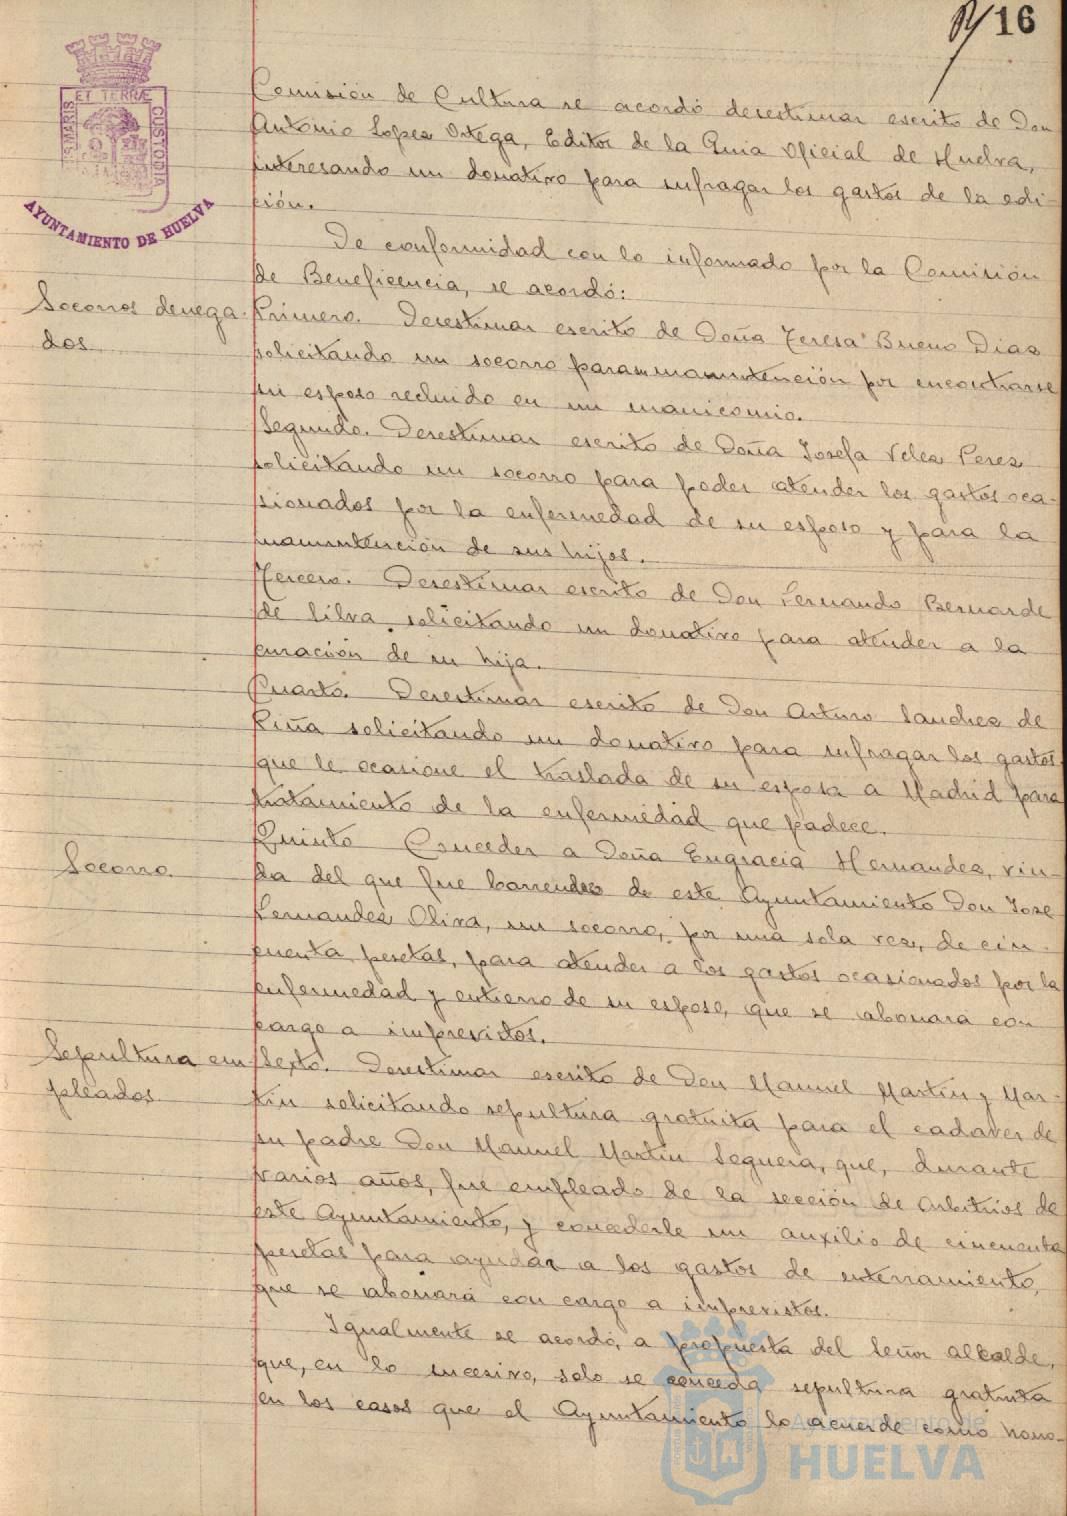 16
PORTUS MARIS ET TERRÆ CUSTODIA
AYUNTAMIENTO DE HUELVA
Comisión de Cultura se acordó desestimar escrito de Don
Antonio Lopez Ortega, Editor de la Guia Oficial de Huelva,
interesando un donativo para sufragar los gastos de la edi-
ción.
De conformidad con lo informado por la Comisión
de Beneficencia, se acordó:
Socorros denega-
dos
Primero. Desestimar escrito de Doña Teresa Bueno Diaz
solicitando un socorro para manutención por encontrarse
su esposo recluido en un manicomio.
Segundo. Desestimar escrito de Doña Josefa Velez Perez
solicitando un socorro para poder atender los gastos oca-
sionados por la enfermedad de su esposo y para la
manutención de sus hijos.
Tercero. Desestimar escrito de Don Fernando Bernarde
de Silva solicitando un donativo para atender a la
curación de su hija.
Cuarto. Desestimar escrito de Don Arturo Sanchez de
Piña solicitando un donativo para sufragar los gastos
que le ocasione el traslada de su esposa a Madrid para
tratamiento de la enfermedad que padece.
Socorro.
Quinto Conceder a Doña Engracia Hernandez, viu-
da del que fue barrendero de este Ayuntamiento Don Jose
Fernandez Oliva, un socorro, por una sola vez, de cin-
cuenta pesetas, para atender a los gastos ocasionados por la
enfermedad y entierro de su esposo, que se abonará con
cargo a imprevistos.
Sepultura em-
pleados
Sexto. Desestimar escrito de Don Manuel Martín y Mar-
tín solicitando sepultura gratuita para el cadaver de
su padre Don Manuel Martín Seguera, que, durante
varios años, fue empleado de la sección de Arbitrios de
este Ayuntamiento, y concederle un auxilio de cincuenta
pesetas para ayudar a los gastos de enterramiento,
que se abonará con cargo a imprevistos.
Igualmente se acordó, a propuesta del Señor Alcalde,
que, en lo sucesivo, solo se conceda sepultura gratuita
en los casos que el Ayuntamiento lo acuerde como hono-
Ayuntamiento de
HUELVA